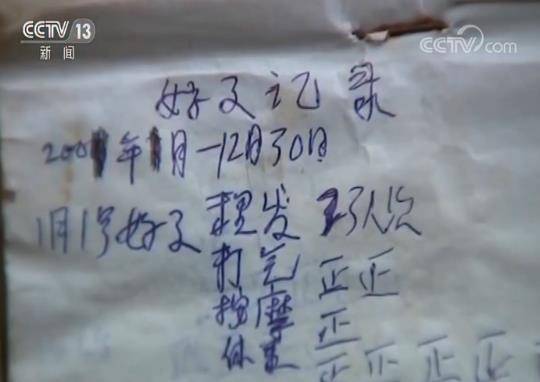 CCTV 13
新闻
CCTV.com
好 记录
2001年1月-12月30日
1月1号好 理发 23人次
打气 正正
按摩 正
正正正正正